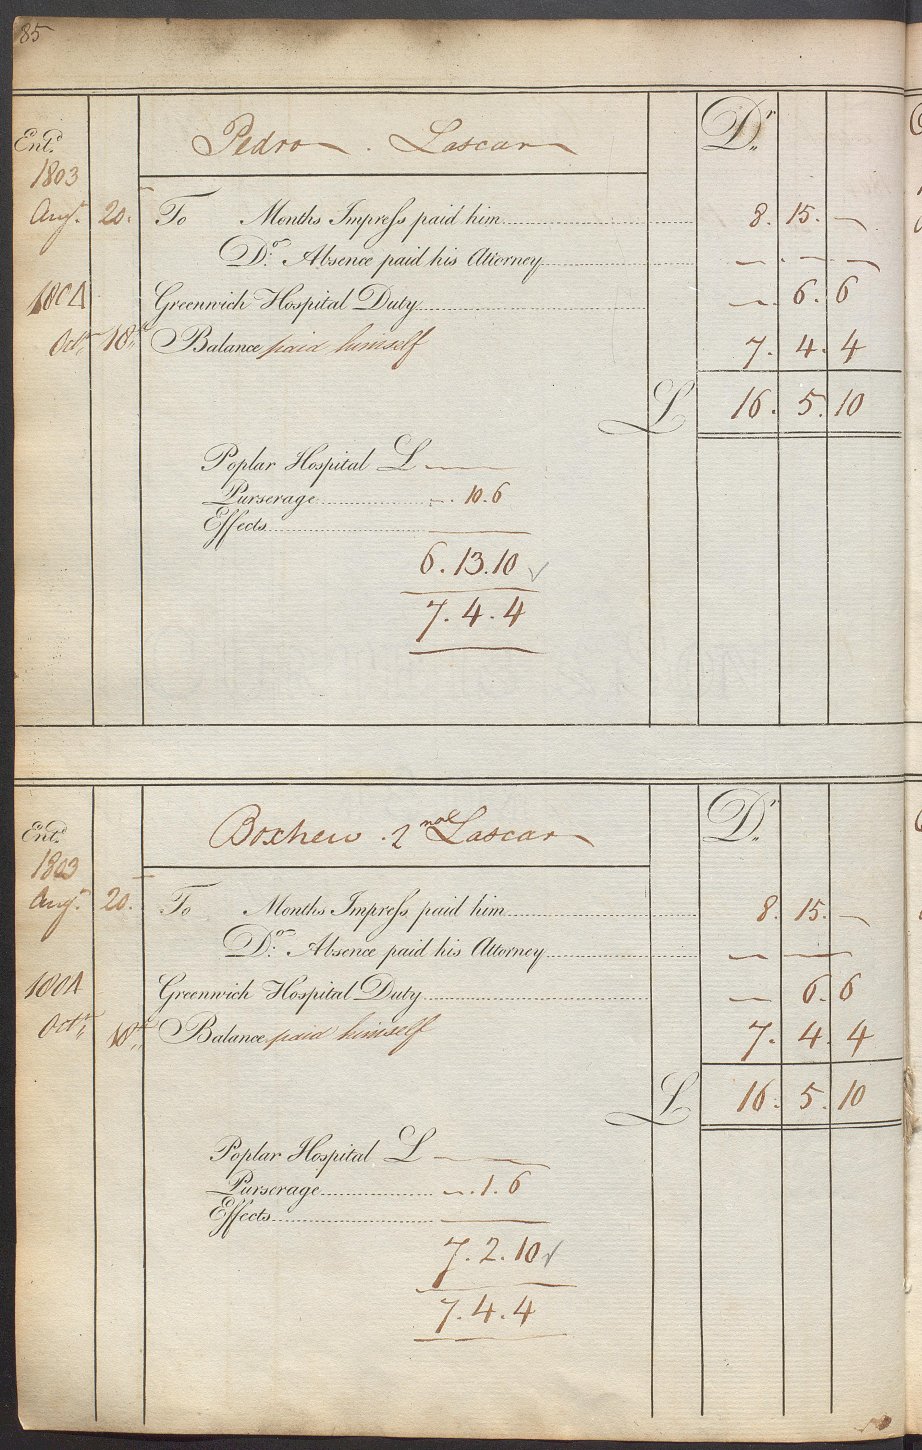 85
Entd. Pedro . Lascar Dr.
1803
Augt. 20. To Months Impress paid him 8. 15. —
Do. Absence paid his Attorney — . — . —
1804 Greenwich Hospital Duty — . 6. 6
Octr. 18th Balance paid himself 7. 4. 4
L 16. 5. 10
Poplar Hospital L —
Purserage — . 10. 6
Effects —
6. 13. 10 ✓
7. 4. 4
Entd. 2nd Lascar Dr.
1803
Augt. 20. To Months Impress paid him 8. 15. —
Do. Absence paid his Attorney — —
1804 Greenwich Hospital Duty — 6. 6
Octr. 18th Balance paid himself 7. 4. 4
L 16. 5. 10
Poplar Hospital L —
Purserage — . 1. 6
Effects —
7. 2. 10 ✓
7. 4. 4